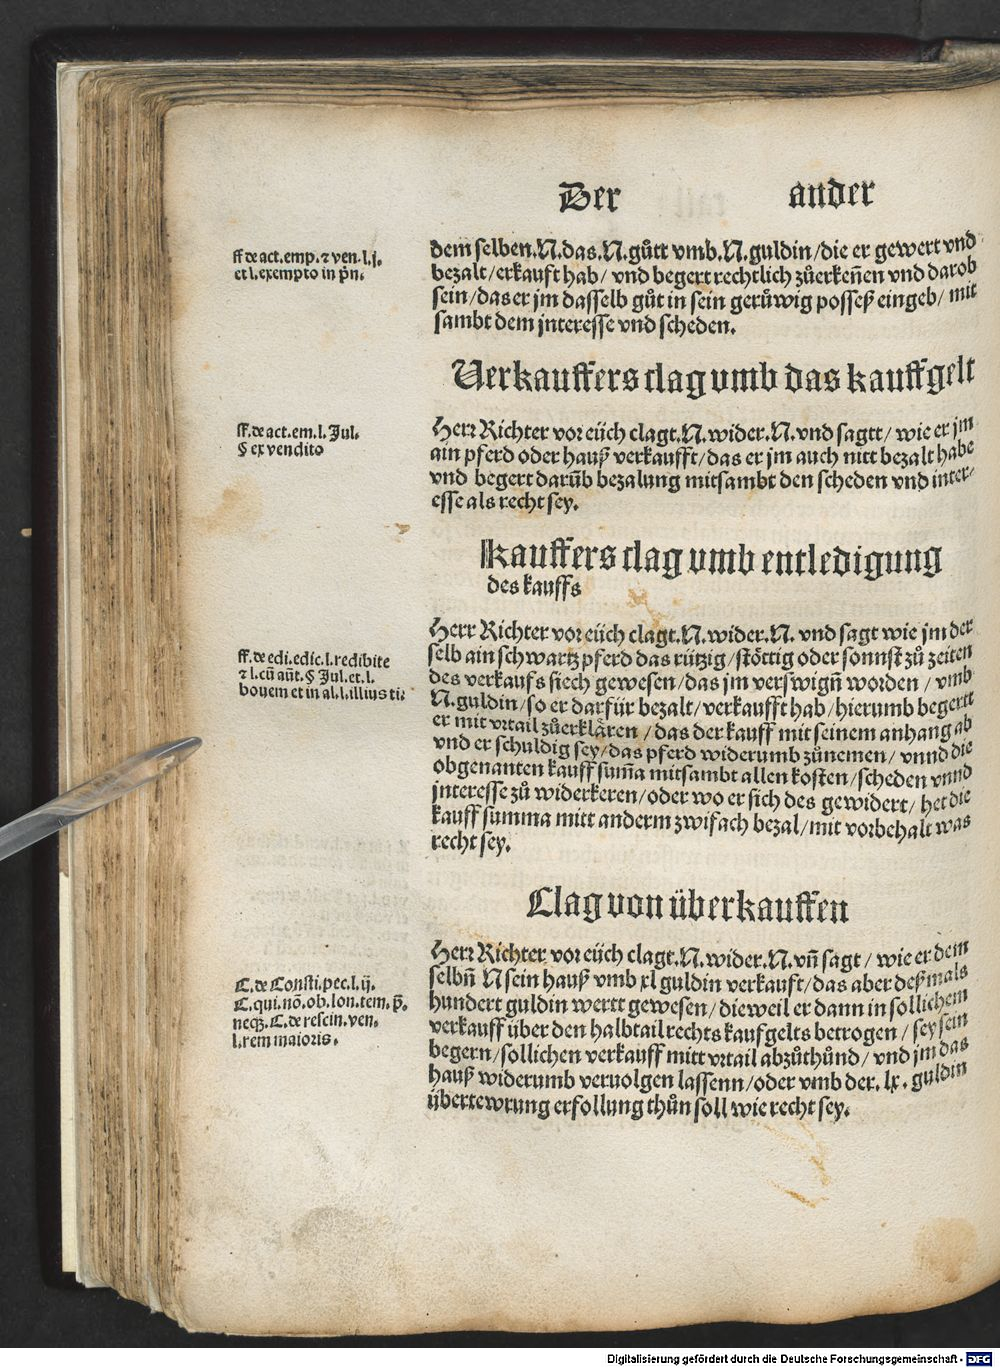 Der ander
ff de act. emp. ⁊ ven. l. j.
et l. exempto in p̄n.
dem selben. N. das. N. gůtt vmb. N. guldin / die er gewert vnd
bezalt / erkauft hab / vnd begert rechtlich zůerkeñen vnd darob
sein / das er jm dasselb gůt in sein gerůwig posseß eingeb / mit
sambt dem jnteresse vnd scheden.
Verkauffers clag vmb das kauffgelt
ff. de act. em. l. Jul.
§ ex vendito
Herr Richter vor eüch clagt. N. wider. N. vnd sagtt / wie er jm
ain pferd oder hauß verkaufft / das er jm auch nitt bezalt habe
vnd begert darūb bezalung mitsambt den scheden vnd inter⸗
esse als recht sey.
Kauffers clag vmb entledigung
des kauffs
ff. de edi. edic. l. redibite
⁊ l. cū aūt. § Jul. et. l.
bouem et in al. l. illius ti:
Herr Richter vor eüch clagt. N. wider. N. vnd sagt wie jm der
selb ain schwartz pferd das rützig / stöttig oder sonnst zů zeiten
des verkaufs siech gewesen / das jm verswign̄ worden / vmb
N. guldin / so er darfür bezalt / verkaufft hab / hierumb begertt
er mit vrtail zůerklären / das der kauff mit seinem anhang ab
vnd er schuldig sey / das pferd widerumb zůnemen / vnnd die
obgenanten kauff sum̄a mitsambt allen kosten / scheden vnnd
jnteresse zů widerkeren / oder wo er sich des gewidert / het die
kauff summa mitt anderm zwifach bezal / mit vorbehalt was
recht sey.
Clag von überkauffen
C. de Consti. pec. l. ij.
C. qui. nō. ob. lon. tem. p̄.
necqꝫ. C. de rescin. ven.
l. rem maioris.
Herr Richter vor eüch clagt. N. wider. N. vn̄ sagt / wie er dem
selbn̄ N sein hauß vmb xl guldin verkauft / das aber deßmals
hundert guldin wertt gewesen / dieweil er dann in sollichem
verkauff über den halbtail rechts kaufgelts betrogen / sey sein
begern / sollichen verkauff mitt vrtail abzůthůnd / vnd jm das
hauß widerumb veruolgen lassenn / oder vmb der. lx. guldin
übertewrung erfollung thůn soll wie recht sey.
Digitalisierung gefördert durch die Deutsche Forschungsgemeinschaft - DFG